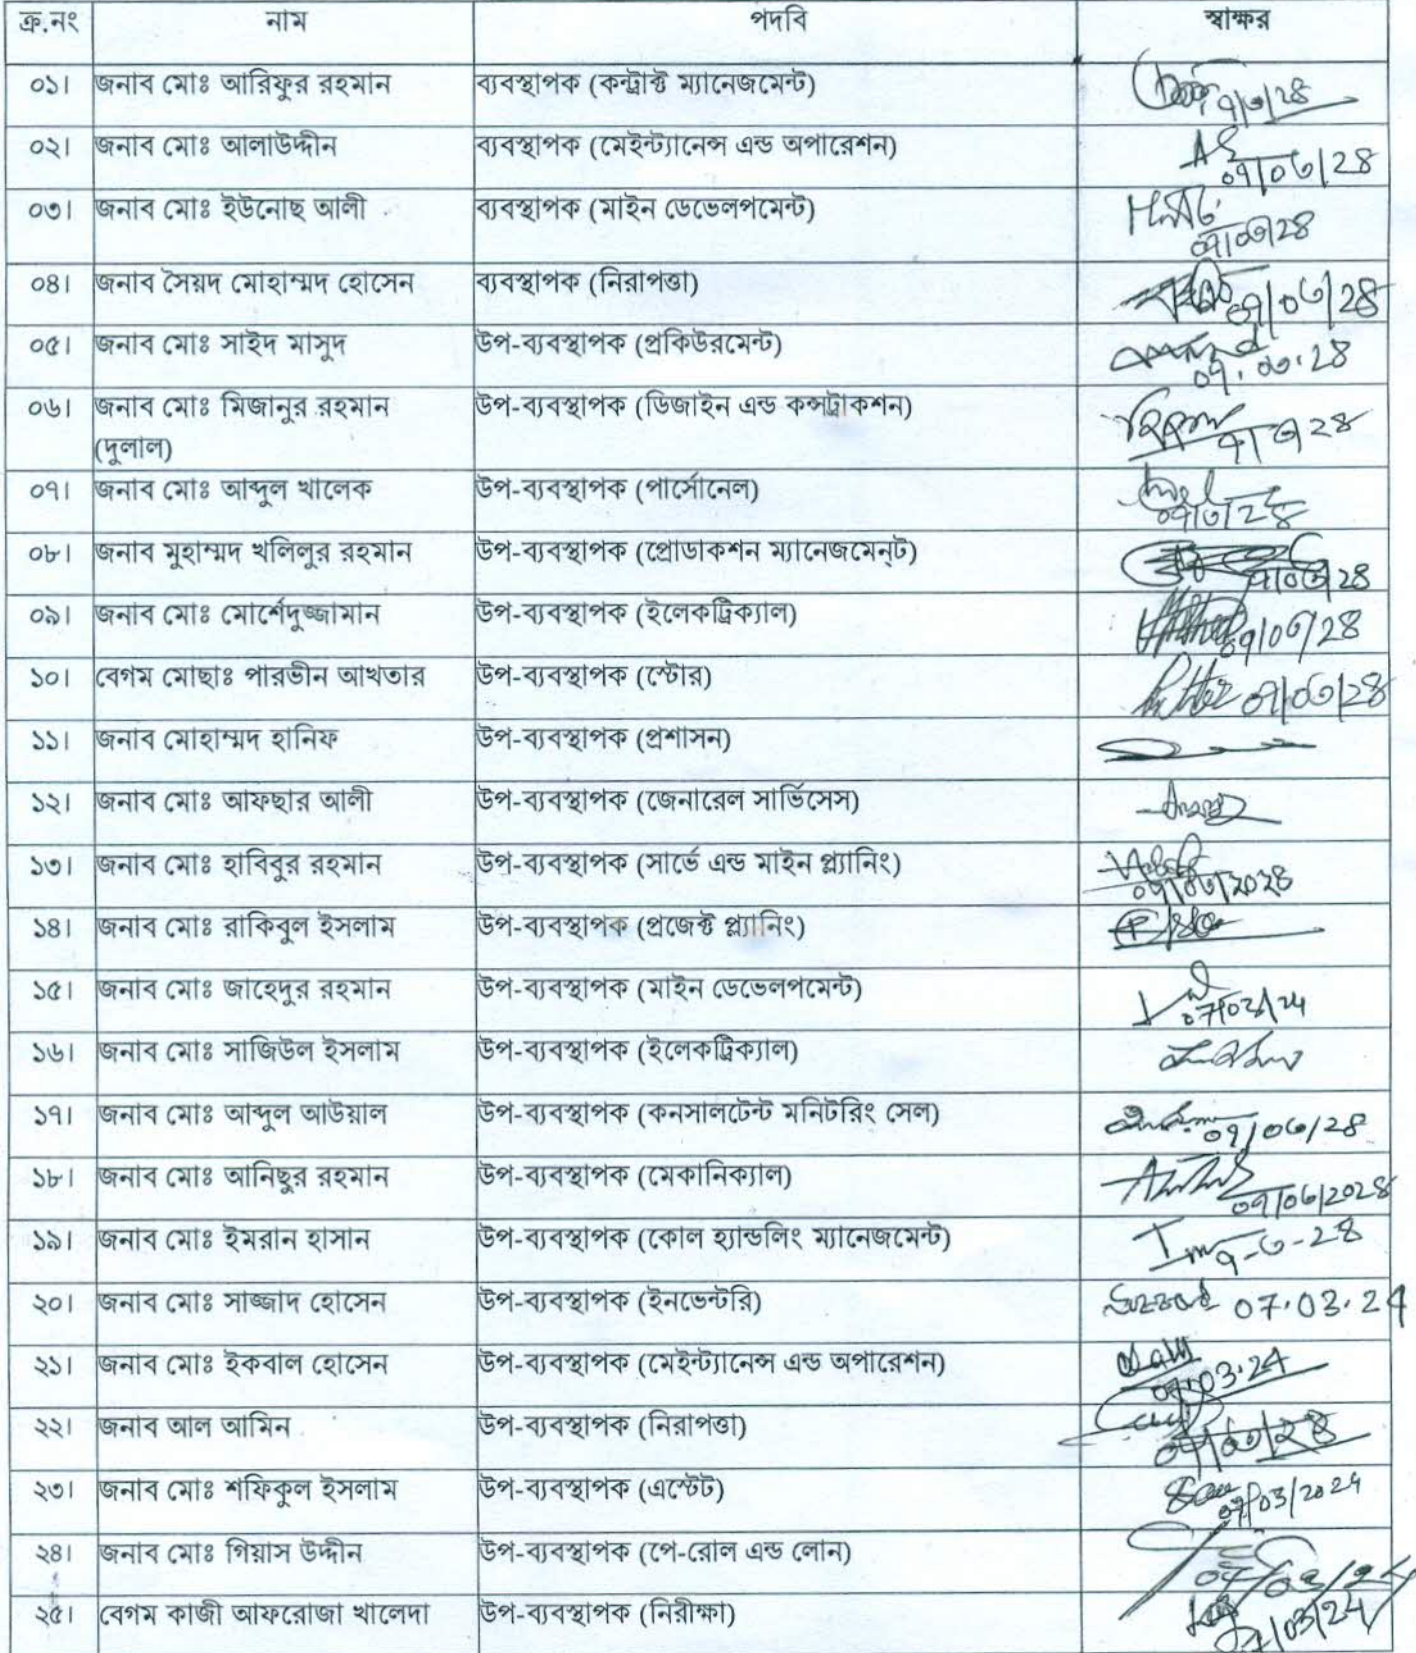 ক্র.নং নাম পদবি স্বাক্ষর
০১। জনাব মোঃ আরিফুর রহমান ব্যবস্থাপক (কন্ট্রাক্ট ম্যানেজমেন্ট) ৭/৩/২৪
০২। জনাব মোঃ আলাউদ্দীন ব্যবস্থাপক (মেইন্ট্যানেন্স এন্ড অপারেশন) ০৭/০৩/২৪
০৩। জনাব মোঃ ইউনোছ আলী ব্যবস্থাপক (মাইন ডেভেলপমেন্ট) ০৭/০৩/২৪
০৪। জনাব সৈয়দ মোহাম্মদ হোসেন ব্যবস্থাপক (নিরাপত্তা) ০৭/০৩/২৪
০৫। জনাব মোঃ সাইদ মাসুদ উপ-ব্যবস্থাপক (প্রকিউরমেন্ট) ০৭.০৩.২৪
০৬। জনাব মোঃ মিজানুর রহমান উপ-ব্যবস্থাপক (ডিজাইন এন্ড কন্সট্রাকশন) ৭/৩/২৪
(দুলাল)
০৭। জনাব মোঃ আব্দুল খালেক উপ-ব্যবস্থাপক (পার্সোনেল) ০৭/৩/২৪
০৮। জনাব মুহাম্মদ খলিলুর রহমান উপ-ব্যবস্থাপক (প্রোডাকশন ম্যানেজমেন্‌ট) ৭/০৩/২৪
০৯। জনাব মোঃ মোর্শেদুজ্জামান উপ-ব্যবস্থাপক (ইলেকট্রিক্যাল) ০৭/০৩/২৪
১০। বেগম মোছাঃ পারভীন আখতার উপ-ব্যবস্থাপক (স্টোর) ০৭/০৩/২৪
১১। জনাব মোহাম্মদ হানিফ উপ-ব্যবস্থাপক (প্রশাসন)
১২। জনাব মোঃ আফছার আলী উপ-ব্যবস্থাপক (জেনারেল সার্ভিসেস)
১৩। জনাব মোঃ হাবিবুর রহমান উপ-ব্যবস্থাপক (সার্ভে এন্ড মাইন প্ল্যানিং) ০৭/০৩/২০২৪
১৪। জনাব মোঃ রাকিবুল ইসলাম উপ-ব্যবস্থাপক (প্রজেক্ট প্ল্যানিং)
১৫। জনাব মোঃ জাহেদুর রহমান উপ-ব্যবস্থাপক (মাইন ডেভেলপমেন্ট) 07/03/24
১৬। জনাব মোঃ সাজিউল ইসলাম উপ-ব্যবস্থাপক (ইলেকট্রিক্যাল)
১৭। জনাব মোঃ আব্দুল আউয়াল উপ-ব্যবস্থাপক (কনসালটেন্ট মনিটরিং সেল) ০৭/০৩/২৪
১৮। জনাব মোঃ আনিছুর রহমান উপ-ব্যবস্থাপক (মেকানিক্যাল) ০৭/০৩/২০২৪
১৯। জনাব মোঃ ইমরান হাসান উপ-ব্যবস্থাপক (কোল হ্যান্ডলিং ম্যানেজমেন্ট) ৭-৩-২৪
২০। জনাব মোঃ সাজ্জাদ হোসেন উপ-ব্যবস্থাপক (ইনভেন্টরি) 07.03.24
২১। জনাব মোঃ ইকবাল হোসেন উপ-ব্যবস্থাপক (মেইন্ট্যানেন্স এন্ড অপারেশন) 07.03.24
২২। জনাব আল আমিন উপ-ব্যবস্থাপক (নিরাপত্তা) ০৭/০৩/২৪
২৩। জনাব মোঃ শফিকুল ইসলাম উপ-ব্যবস্থাপক (এস্টেট) 07/03/2024
২৪। জনাব মোঃ গিয়াস উদ্দীন উপ-ব্যবস্থাপক (পে-রোল এন্ড লোন) 07/03/24
২৫। বেগম কাজী আফরোজা খালেদা উপ-ব্যবস্থাপক (নিরীক্ষা) 7/03/24